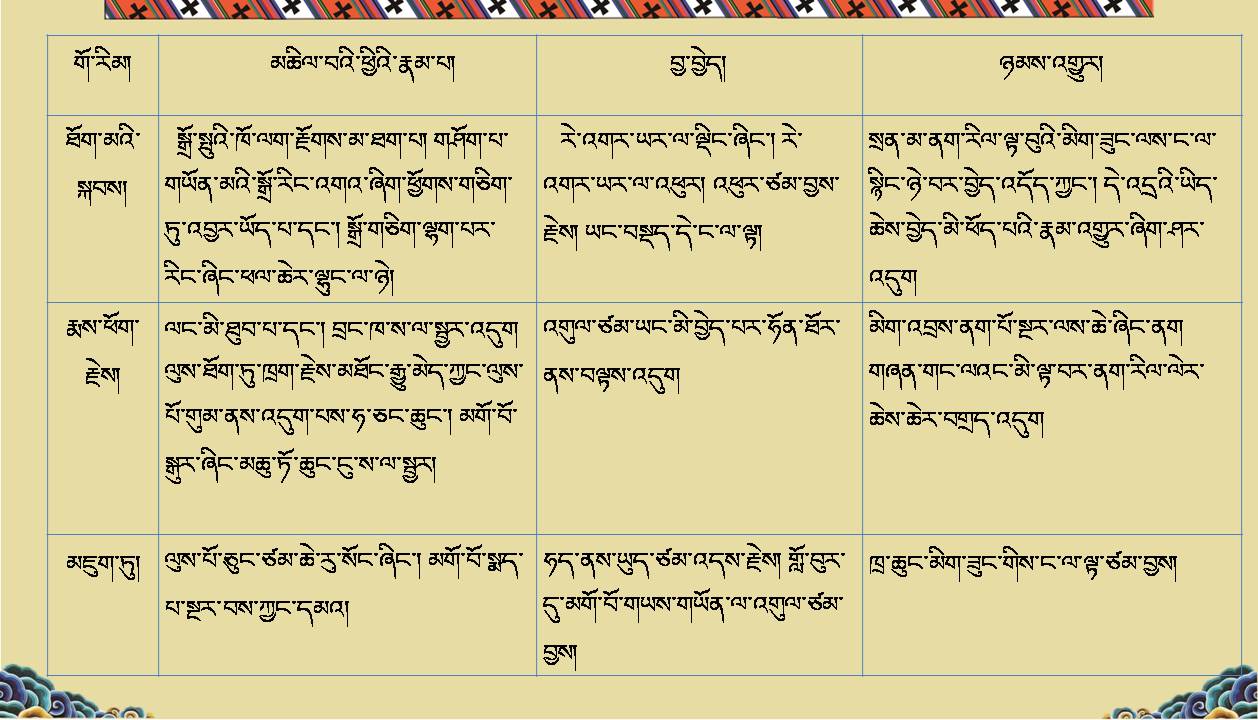 གོ་རིམ།
མཆིལ་བའི་ཕྱིའི་རྣམ་པ།
བྱ་བྱེད།
ཉམས་འགྱུར།
ཐོག་མའི་
སྐབས།
སྒྲོ་སྤུའི་ཁོ་ལག་རྫོགས་མ་ཐག་པ། གཤོག་པ་
གཡོན་མའི་སྒྲོ་རིང་འགའ་ཞིག་ཕྱོགས་གཅིག་
ཏུ་འབྱར་ཡོད་པ་དང་། སྒྲོ་གཅིག་ལྷག་པར་
རིང་ཞིང་ཕལ་ཆེར་ལྷུང་ལ་ཉེ།
རེ་འགར་ཡར་ལ་ལྡིང་ཞིང་། རེ་
འགར་ཡར་ལ་འཕུར། འཕུར་ཙམ་བྱས་
རྗེས། ཡང་བསྡད་དེ་ང་ལ་ལྟ།
སྲན་མ་ནག་རིལ་ལྟ་བུའི་མིག་ཟུང་ལས་ང་ལ་
སྙིང་ཉེ་བར་བྱེད་འདོད་ཀྱང་། དེ་འདྲའི་ཡིད་
ཆེས་བྱེད་མི་ཕོད་པའི་རྣམ་འགྱུར་ཞིག་ཤར་
འདུག
རྨས་ཕོག་
རྗེས།
ལང་མི་ཐུབ་པ་དང་། བྲང་ཁ་ས་ལ་སྦྱར་འདུག
ལུས་ཐོག་ཏུ་ཁྲག་རྗེས་མཐོང་རྒྱུ་མེད་ཀྱང་ལུས་
པོ་གུམ་ནས་འདུག་པས་ཧ་ཅང་ཆུང་། མགོ་བོ་
སྒུར་ཞིང་མཆུ་ཏོ་ཆུང་ངུ་ས་ལ་སྦྱར།
འགུལ་ཙམ་ཡང་མི་བྱེད་པར་ཧོན་ཐོར་
ནས་བལྟས་འདུག
མིག་འབྲས་ནག་པོ་སྔར་ལས་ཆེ་ཞིང་ནག
གཞན་གང་ལའང་མི་ལྟ་བར་ནག་རིལ་ལེར་
ཆེས་ཆེར་བགྲད་འདུག
མཇུག་ཏུ།
ལུས་པོ་ཅུང་ཙམ་ཆེ་རུ་སོང་ཞིང་། མགོ་བོ་སྨད་
པ་སྔར་བས་ཀྱང་དམའ།
ཧད་ནས་ཡུད་ཙམ་འདས་རྗེས། གློ་བུར་
དུ་མགོ་བོ་གཡས་གཡོན་ལ་འགུལ་ཙམ་
བྱས།
ཁྲ་ཆུང་མིག་ཟུང་གིས་ང་ལ་ལྟ་ཙམ་བྱས།